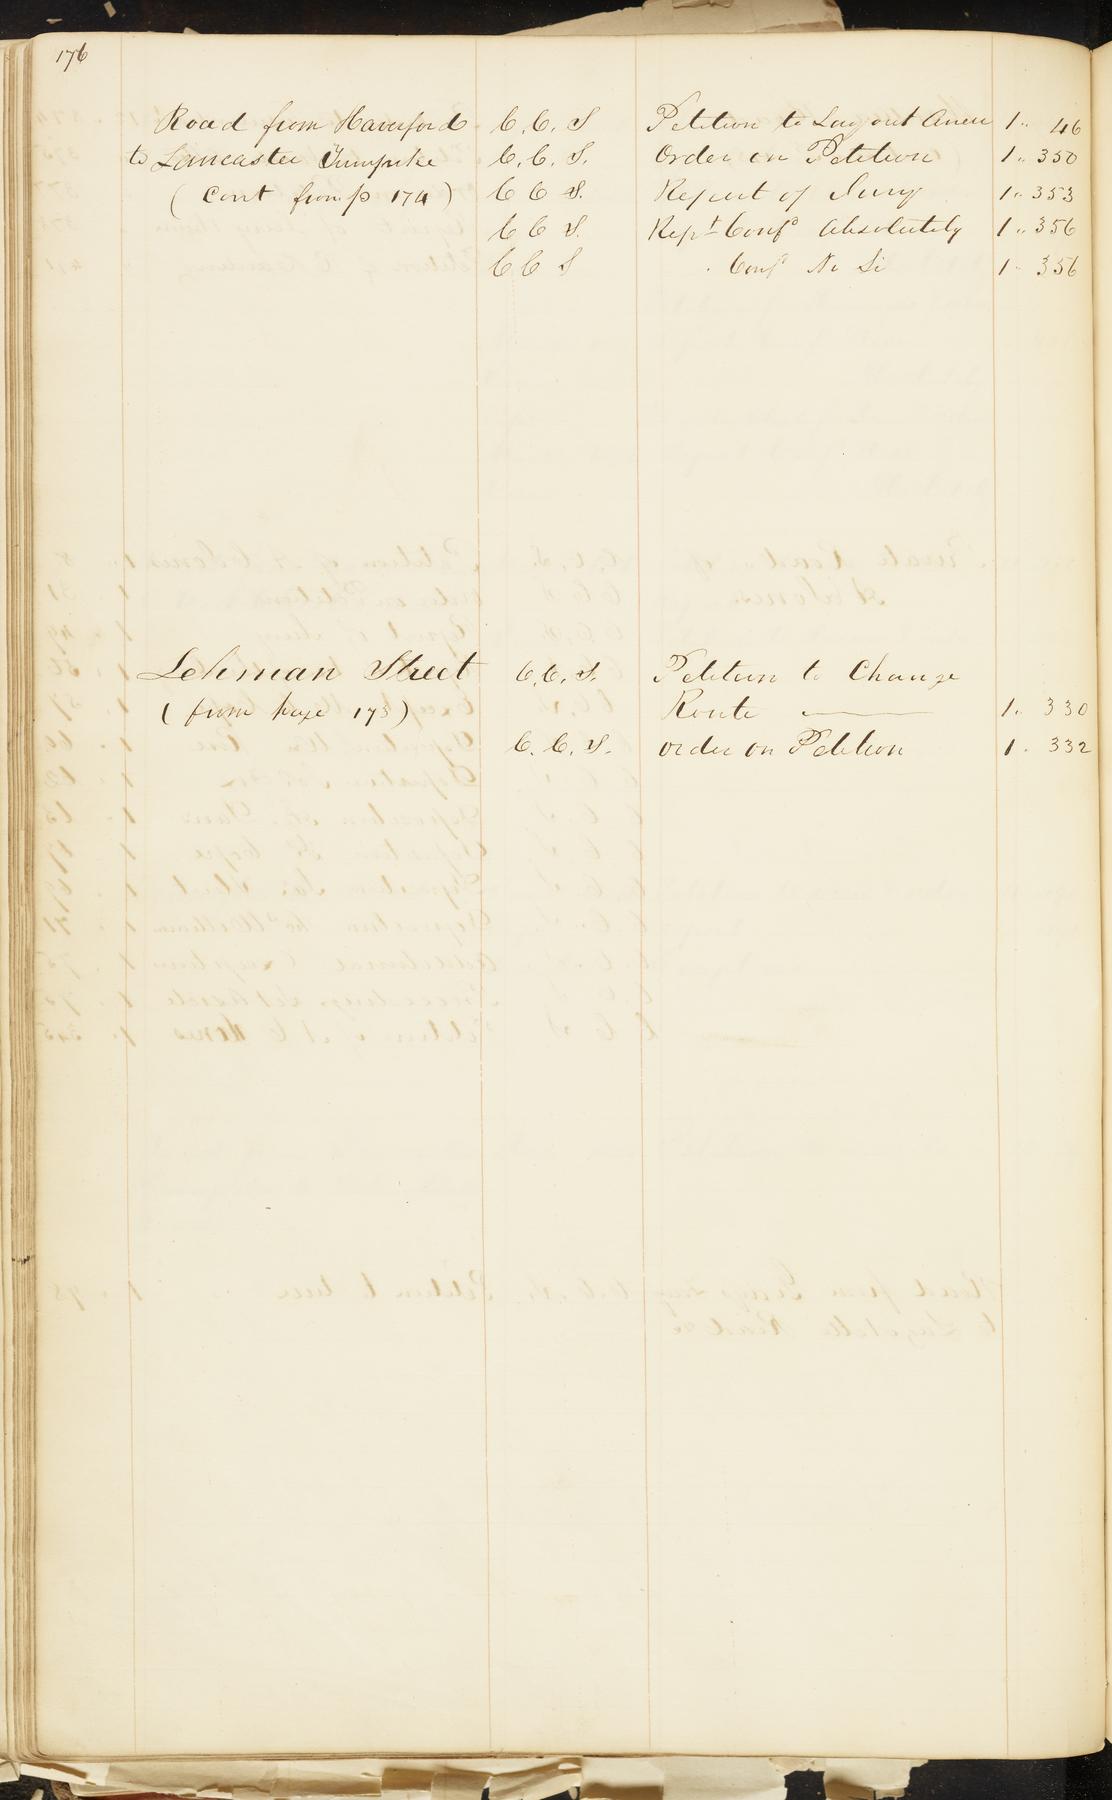 176
Road from Haverford C. C. S Petition to Lay out Anew 1 " 46
to Lancaster Turnpike C. C. S. Order on Petition 1 " 350
( Cont from p 174 ) C C S. Report of Jury 1 " 353
C C S. Rept Confd Absolutely 1 " 356
C C S " Confd Ni Si 1 " 356
Lehman Street C. C. S. Petition to Change
( from page 173 ) Route 1 " 330
C. C. S. order on Petition 1 " 332